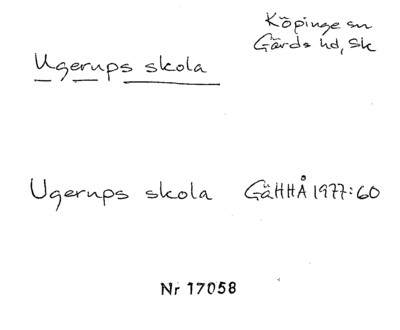 Köpinge sn
Gärds hd, Sk
Ugerups skola
Ugerups skola GäHHÅ 1977:60
Nr 17058